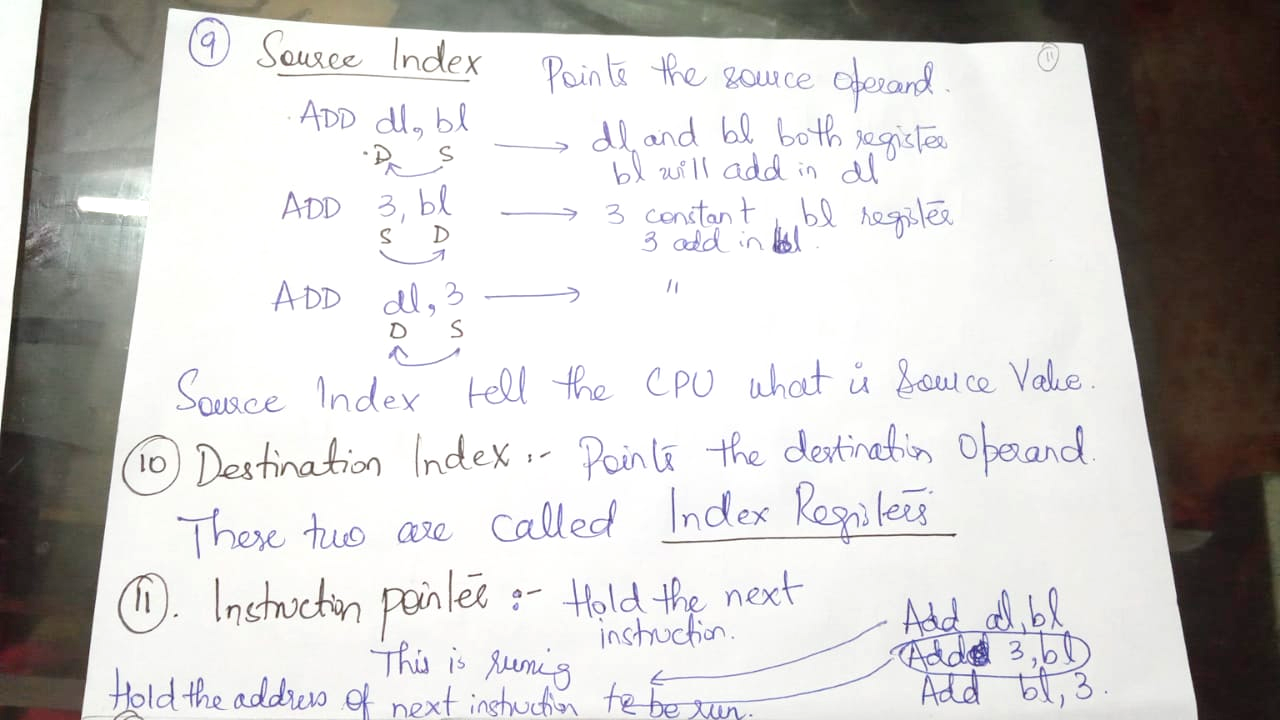 9 Source Index Points the source operand.
11
ADD dl, bl
D S
dl and bl both register
bl will add in dl
ADD 3, bl
S D
3 constant, bl register
3 add in bl.
ADD dl, 3
D S
"
Source Index tell the CPU what is Source Value.
10 Destination Index :- Points the destination Operand.
These two are called Index Registers
11. Instruction pointer :- Hold the next
instruction.
Add al, bl
This is runing
Add 3, bl
Hold the address of next instruction to be run.
Add bl, 3.